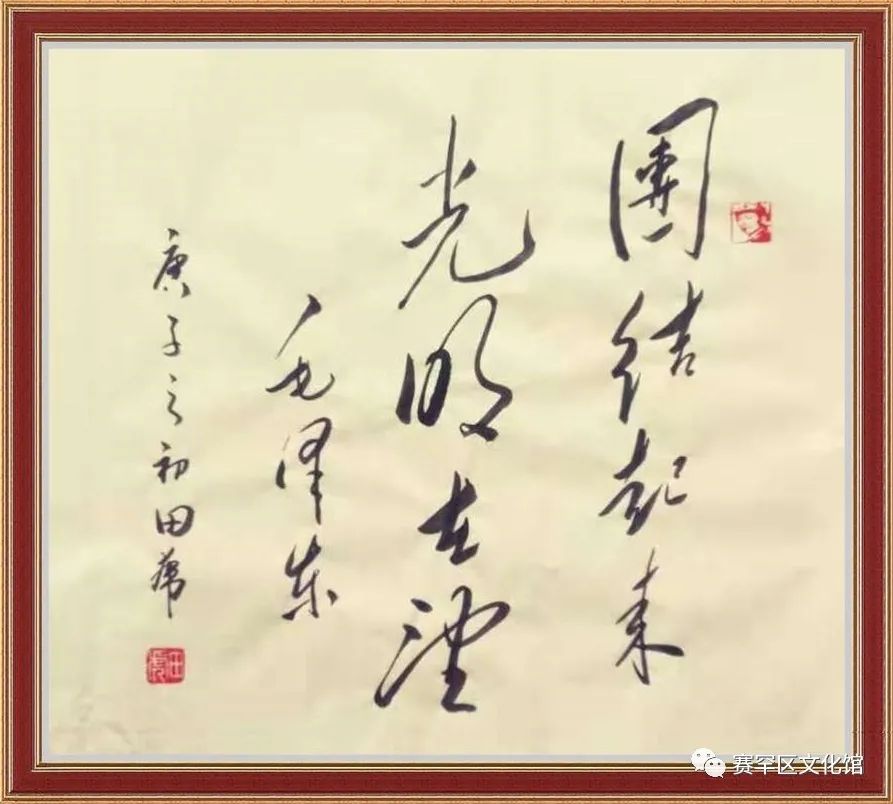 團结起来
光明在望
毛泽东
庚子之初田
赛罕区文化馆